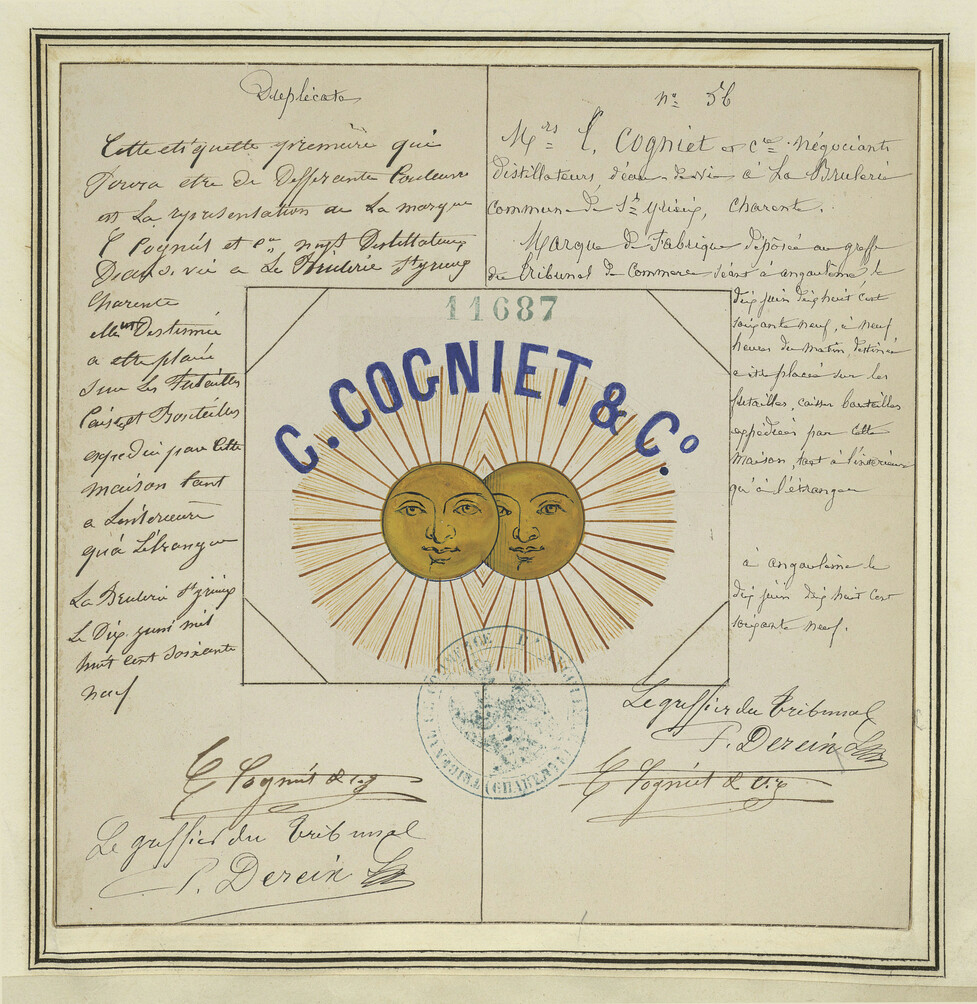 Duplicata
Cette etiquette première qui
Pourra etre de Defferante Couleure
est La representation de La marque
C Cogniét et Cie Distillateurs
D'eau de vie a La Brulerie St yrieix
Charente
Elle Destinée
a etre placée
sur Les Futailles
Caisse, et Bouteilles
expediée par Cette
maison tant
a Lintérieure
qu'á L'étranger
La Brulerie St yrieix
Le Dix juni mil
huit cent soixante
neuf
C Cogniét & Cie
Le greffier du tribunal
P. Derein
n° 56
Mrs C. Cogniet et Cie négociants
distillateurs d'eau-de-vie à La Brulerie
Commune de St yrieix, Charente.
Marque de Fabrique déposée au greffe
du tribunal de Commerce séant à angoulême le
dix juin dix huit cent
soixante neuf, à neuf
heures du matin, destinée
a etre placée sur les
futailles, caisses bouteilles
expédiées par cette
maison, tant à l'intérieur
qu'à l'étranger
à angoulême le
dix juin dix huit cent
soixante neuf.
Le greffier du tribunal
P. Derein
C Cogniét & Cie
11687
C. COGNIET & Co.
TRIBUNAL DE COMMERCE D'ANGOULEME (CHARENTE)